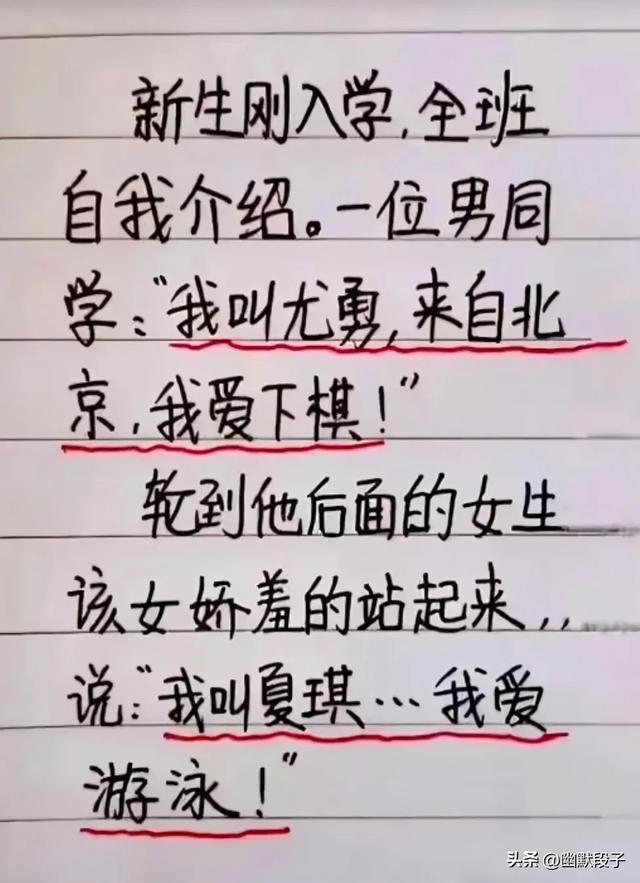 新生刚入学,全班
自我介绍。一位男同
学:“我叫尤勇,来自北
京,我爱下棋!”
轮到他后面的女生
该女娇羞的站起来,,
说:“我叫夏琪…我爱
游泳!”
头条 @幽默段子